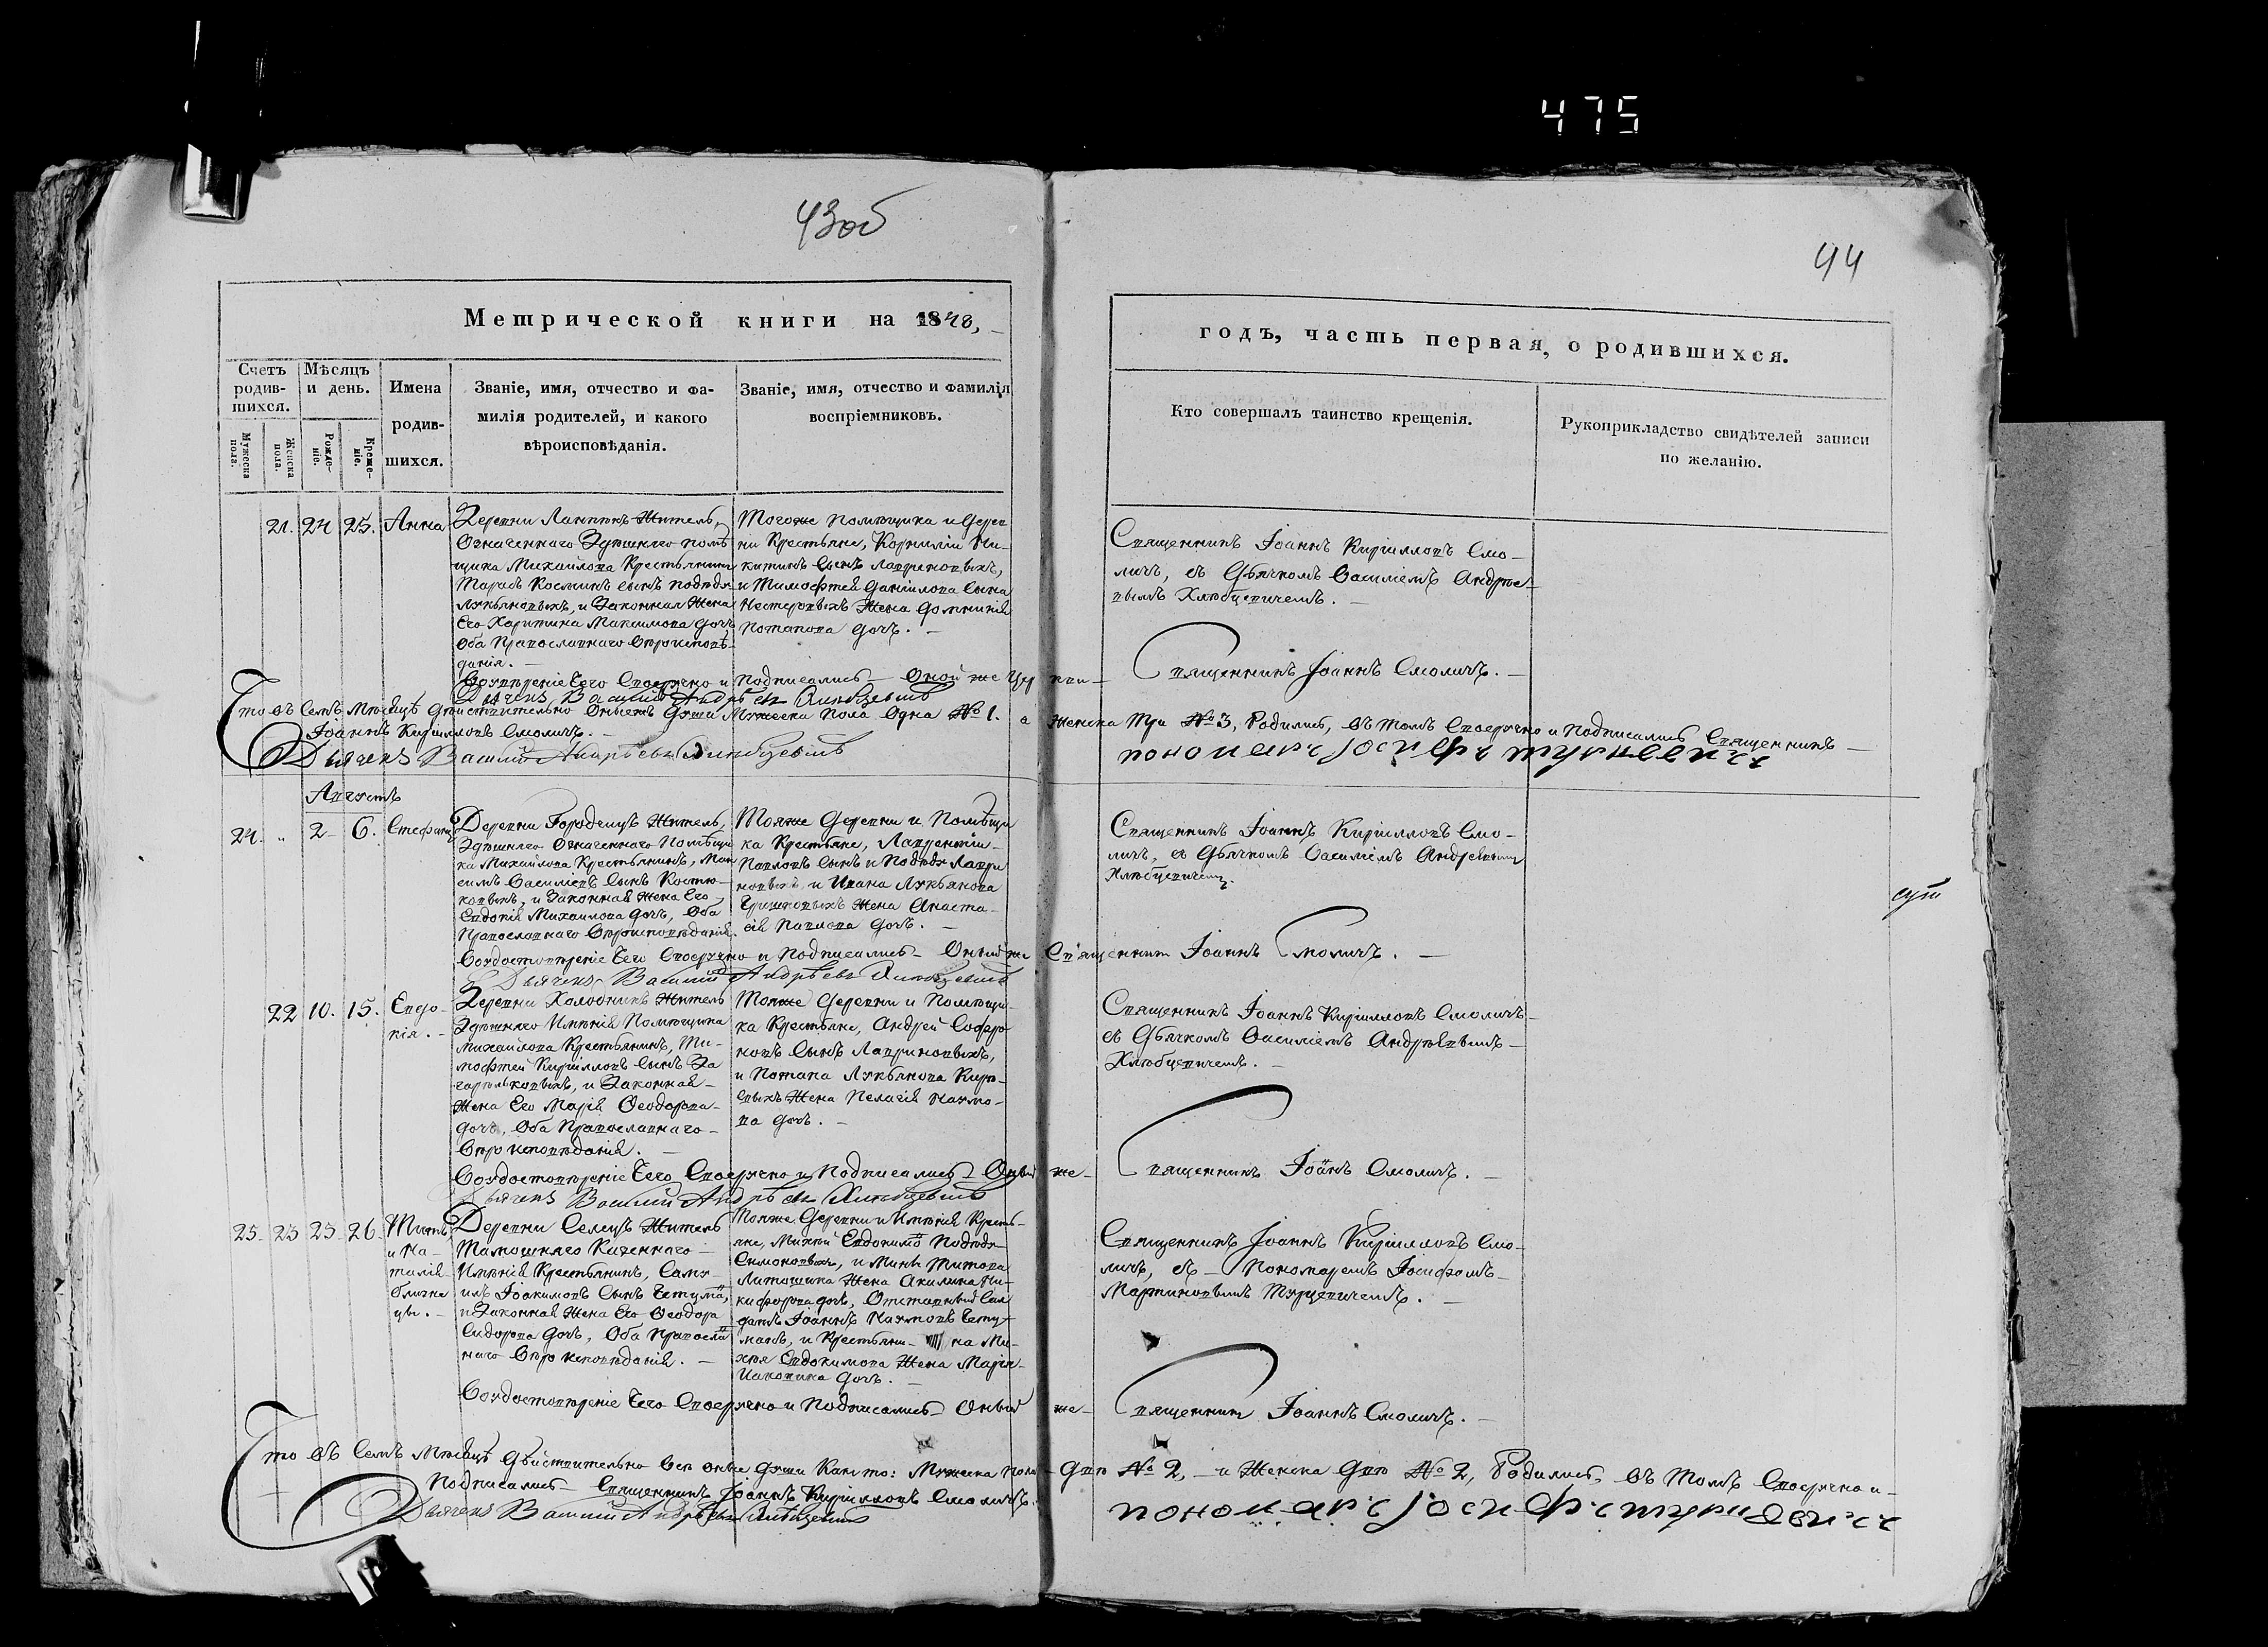 475
43об
44
Метрической книги на 1848,
годъ, часть первая, о родившихся.
Счетъ родив-шихся.
Мѣсяцъ и день.
Имена родив-шихся.
Званіе, имя, отчество и фа-
милія родителей, и какого
вѣроисповѣданія.
Званіе, имя, отчество и фамилія
воспріемниковъ.
Кто совершалъ таинство крещенія.
Рукоприкладство свидѣтелей записи
по желанію.
Мужеска пола.
Женска пола.
Рожде-ніе.
Креще-ніе.
21. 24 25. Анна
Деревни Житель,
Означеннаго Здѣшняго помѣ
щика Михайлова Крестьянинъ
Тарасъ Косминъ сынъ
Лукьяновыхъ, и Законная Жена
Его Харитина Максимова дочь
Оба Православнаго Вѣроисповѣ-
данія.
Тогоже Помѣщика и Дерев
ни Крестьяне, Корнилій Ни-
китинъ Сынъ Лавриновыхъ,
и Тимофтея Даніилова Сына
Нестеровыхъ Жена Домникія
Потапова дочь.
Священникъ Іоаннъ Кирилловъ Смо-
личъ, съ Дьячкомъ Василіемъ Андрее-
вымъ Хлѣбцевичемъ.
Своеручно и Подписались Оной же Церкви
Священникъ Іоаннъ Смоличъ.
Дьячекъ Василій Андрѣевъ Хлѣбцевичъ
Что въ Семъ Мѣсяцѣ дѣйствительно Души Мужеска Пола Одна № 1. а Женска Три № 3, Родились, въ томъ Своеручно и Подписались Священникъ
Іоаннъ Кирилловъ Смоличъ.
Дьячекъ Василій Андрѣевъ Хлѣбцевичъ
пономарь Іосифъ
Августъ
24. „ 2 6. Стефанъ
Деревни Городецъ Житель,
Здѣшняго Означеннаго Помѣщи
ка Михайлова Крестьянинъ, Мак
симъ Василіевъ Сынъ Костю-
ковыхъ, и Законная Жена Его,
Евдокія Михаилова дочь, Оба
Православнаго Вѣроисповѣданія.
Тояже Деревни и Помѣщи
ка Крестьяне, Лаврентій
Павловъ Сынъ и Лаври
новыхъ и Ивана Лукьянова
Гришковыхъ Жена Анаста-
сія Павлова дочь.
Священникъ Іоаннъ Кирилловъ Смо-
личъ, съ Дьячкомъ Василіемъ Андрѣевымъ
Хлѣбцевичемъ.
Воудостовѣреніе Сего Своеручно и Подписались Оный же Священникъ Іоаннъ Смоличъ.
Дьячекъ Василій Андрѣевъ Хлѣбцевичъ
22 10. 15. Евдо-
кія.
Деревни Холодникъ Житель
Здѣшняго Имѣнія Помѣщика
Михайлова Крестьянинъ, Ти-
мофтей Кирилловъ Сынъ За
и Законная
Жена Его Марія Ѳеодорова
дочь, Оба Православнаго
Вѣроисповѣданія.
Тояже Деревни и Помѣщи-
ка Крестьяне, Андрей Софро
новъ Сынъ Лавриновыхъ,
и Потапа Лукьянова Кирѣ-
евыхъ Жена Пелагія Наумо-
ва дочь.
Священникъ Іоаннъ Кирилловъ Смоличъ
съ Дьячкомъ Василіемъ Андрѣевымъ
Хлѣбцевичемъ.
Воудостовѣреніе Сего Своеручно и Подписались Оный же Священникъ Іоаннъ Смоличъ.
Дьячекъ Василій Андрѣевъ Хлѣбцевичъ
25. 23 23 26 Титъ
и На-
талія
близне
цы.
Деревни Селецъ Житель
Тамошняго Казеннаго
Имѣнія Крестьянинъ, Саму-
илъ Іоакимовъ Сынъ
и Законная Жена Его Ѳеодора
Сидорова дочь, Оба Православ
наго Вѣроисповѣданія.
Тояже Деревни и Имѣнія Кресть-
яне, Михей Евдокимовъ
Симоновыхъ, и Титова
Жена Акилина Ни-
кифорова дочь, Отставный Сол
датъ Іоаннъ Наумовъ
и Крестьяни на Ми-
хея Евдокимова Жена Марія
дочь.
Священникъ Іоаннъ Кирилловъ Смо-
личъ, съ Пономаремъ Іосифомъ
Мартиновымъ Турцевичемъ.
Воудостовѣреніе Сего Своеручно и Подписались Оный же Священникъ Іоаннъ Смоличъ.
Что Въ Семъ Мѣсяцѣ Дѣйствительно Всѣ оные души Какъ то: Мужеска пола Двѣ № 2, и Женска Двѣ № 2, Родились, Въ Томъ Своеручно и
Подписались Священникъ Іоаннъ Кирилловъ Смоличъ.
Дьячекъ Василій Андрѣевъ Хлѣбцевичъ
пономарь Іосифъ